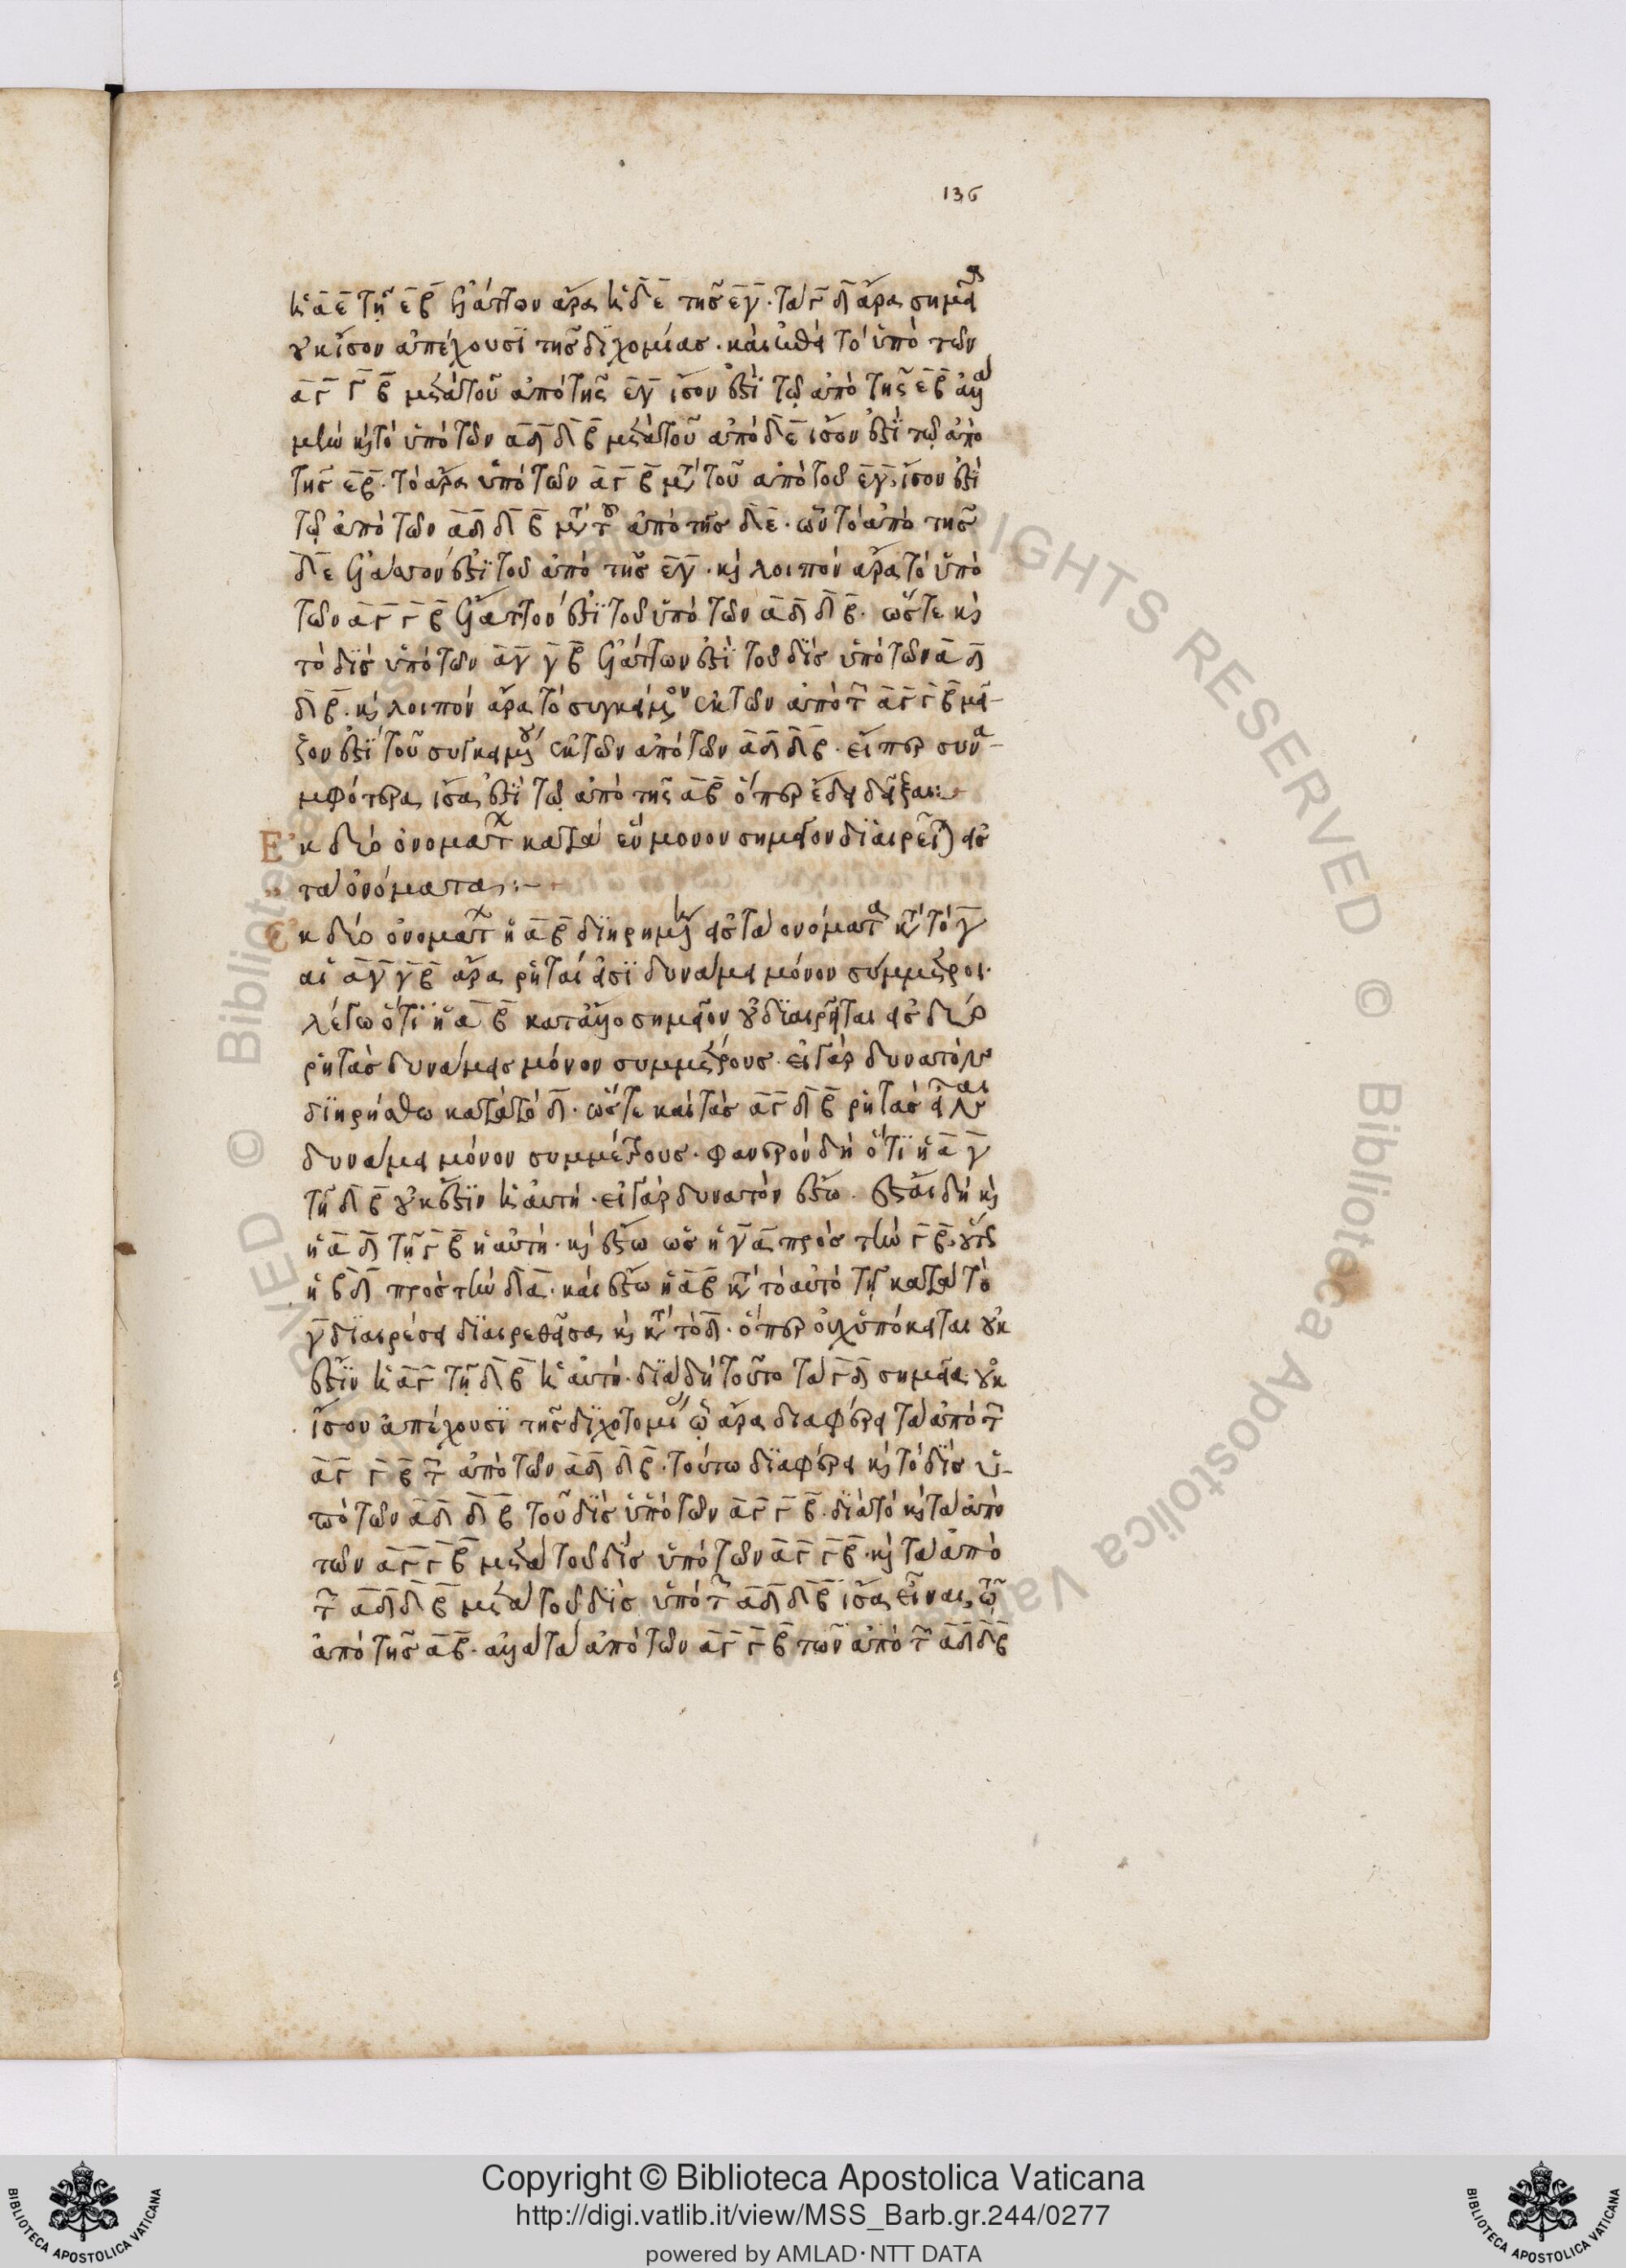 136
ἡ α ε τῇ ε β ἐλάττων ἄρα ἡ δ ε τῆς ε γ · τὰ γ δ ἄρα σημεῖα
οὐκ ἴσον ἀπέχουσι τῆς διχοτομίας · καὶ ἐπεὶ τὸ ὑπὸ τῶν
α γ γ β μετὰ τοῦ ἀπὸ τῆς ε γ ἴσον ἐστὶ τῷ ἀπὸ τῆς ε β ἀλλὰ
μὴν καὶ τὸ ὑπὸ τῶν α δ δ β μετὰ τοῦ ἀπὸ δ ε ἴσον ἐστὶ τῷ ἀπὸ
τῆς ε β · τὸ ἄρα ὑπὸ τῶν α γ β μετὰ τοῦ ἀπὸ τοῦ ε γ ἴσον ἐστὶ
τῷ ἀπὸ τῶν α δ δ β μετὰ τοῦ ἀπὸ τῆς δ ε · ὧν τὸ ἀπὸ τῆς
δ ε ἔλασσόν ἐστι τοῦ ἀπὸ τῆς ε γ · καὶ λοιπὸν ἄρα τὸ ὑπὸ
τῶν α γ γ β ἔλαττόν ἐστι τοῦ ὑπὸ τῶν α δ δ β · ὥστε καὶ
τὸ δὶς ὑπὸ τῶν α γ γ β ἔλαττόν ἐστι τοῦ δὶς ὑπὸ τῶν α δ
δ β · καὶ λοιπὸν ἄρα τὸ συγκείμενον ἐκ τῶν ἀπὸ τῶν α γ γ β μεῖ-
ζόν ἐστι τοῦ συγκειμένου ἐκ τῶν ἀπὸ τῶν α δ δ β · εἴπερ συνα-
μφότερα ἴσα ἐστὶ τῷ ἀπὸ τῆς α β ὅπερ ἔδει δεῖξαι :
Ἐκ δύο ὀνομάτων κατὰ ἓν μόνον σημεῖον διαιρεῖται εἰς
τὰ ὀνόματα :-
Ἐκ δύο ὀνομάτων ἡ α β διῃρημένη εἰς τὰ ὀνόματα κατὰ τὸ γ
αἱ α γ γ β ἄρα ῥηταί εἰσι δυνάμει μόνον σύμμετροι ·
λέγω ὅτι ἡ α β κατ' ἄλλο σημεῖον οὐ διαιρεῖται εἰς δύο
ῥητὰς δυνάμει μόνον συμμέτρους · εἰ γὰρ δυνατὸν
διῃρήσθω κατὰ τὸ δ · ὥστε καὶ τὰς α γ δ β ῥητὰς εἶναι
δυνάμει μόνον συμμέτρους · φανερὸν δὴ ὅτι ἡ α γ
τῇ δ β οὐκ ἔστιν ἡ αὐτή · εἰ γὰρ δυνατὸν ἔστω · ἔσται δὴ καὶ
ἡ α δ τῇ γ β ἡ αὐτή · καὶ ἔστω ὡς ἡ γ α πρὸς τὴν γ β · οὕτως
ἡ β δ πρὸς τὴν δ α · καὶ ἔστω ἡ α β κατὰ τὸ αὐτὸ τῇ κατὰ τὸ
γ διαιρέσει διαιρεθεῖσα καὶ κατὰ τὸ δ · ὅπερ οὐχ ὑπόκειται οὐκ
ἔστιν ἡ α γ τῇ δ β ἡ αὐτή · διὰ δὴ τοῦτο τὰ γ δ σημεῖα οὐκ
ἴσον ἀπέχουσι τῆς διχοτομίας ᾧ ἄρα διαφέρει τὰ ἀπὸ τῶν
α γ γ β τῶν ἀπὸ τῶν α δ δ β · τούτῳ διαφέρει καὶ τὸ δὶς ὑ-
πὸ τῶν α δ δ β τοῦ δὶς ὑπὸ τῶν α γ γ β · διὰ τὸ καὶ τὰ ἀπὸ
τῶν α γ γ β μετὰ τοῦ δὶς ὑπὸ τῶν α γ γ β · καὶ τὰ ἀπὸ
τῶν α δ δ β μετὰ τοῦ δὶς ὑπὸ τῶν α δ δ β ἴσα εἶναι τῷ
ἀπὸ τῆς α β · ἀλλὰ τὰ ἀπὸ τῶν α γ γ β τῶν ἀπὸ τῶν α δ δ β
Copyright © Biblioteca Apostolica Vaticana
http://digi.vatlib.it/view/MSS_Barb.gr.244/0277
powered by AMLAD·NTT DATA